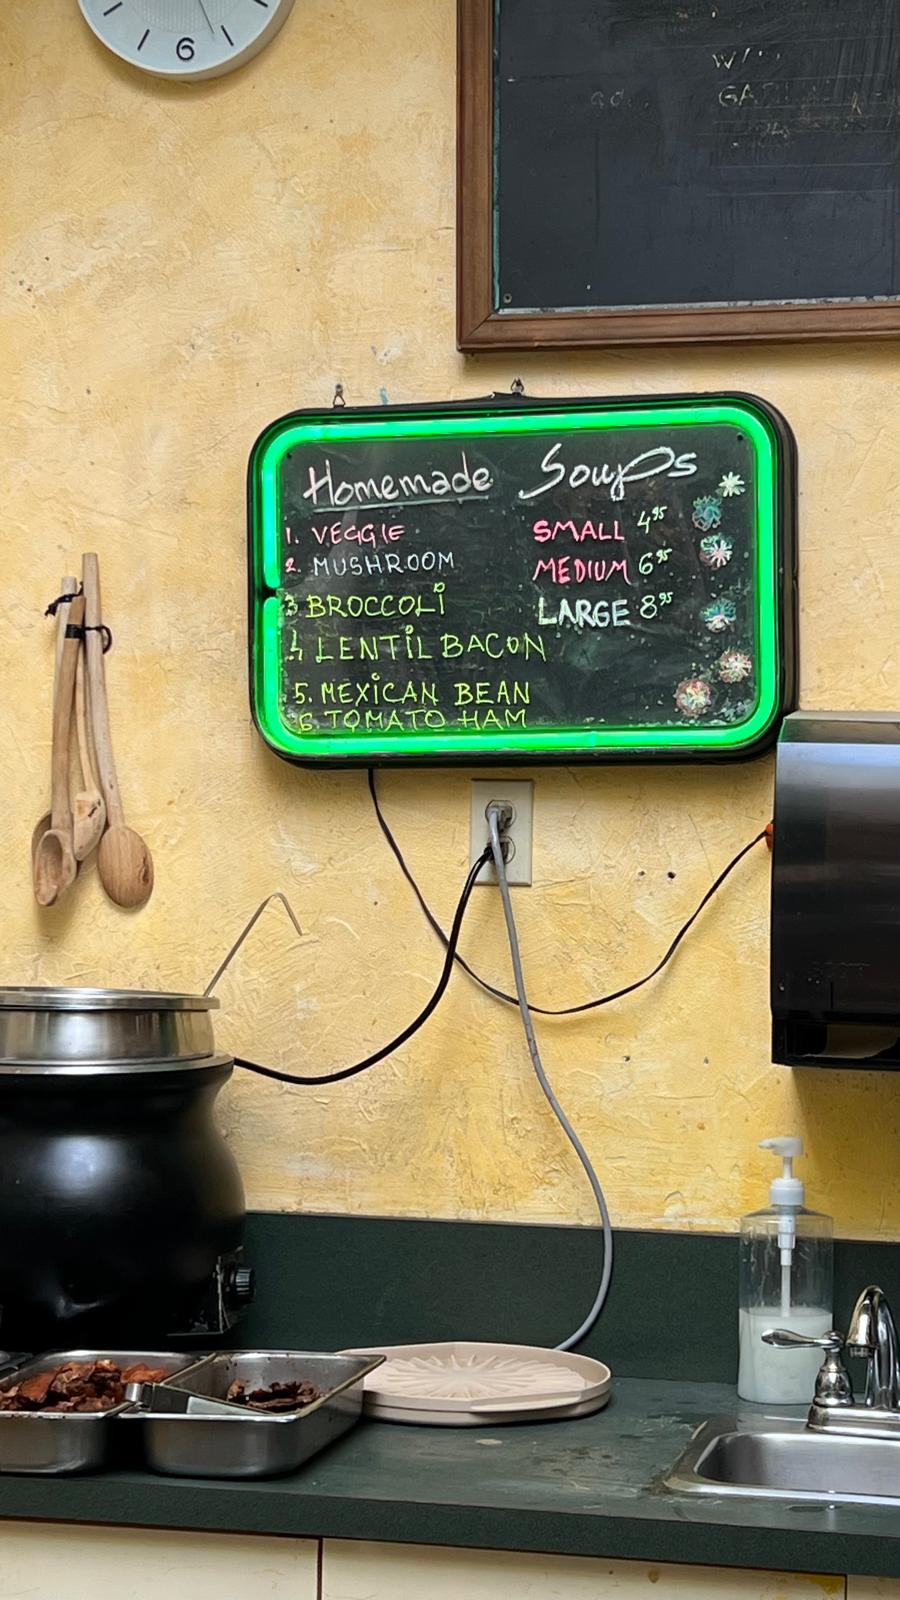 6
W/
Homemade Soups
1. VEGGIE
2. MUSHROOM
3 BROCCOLI
4 LENTIL BACON
5. MEXICAN BEAN
6 TOMATO HAM
SMALL 4.95
MEDIUM 6.95
LARGE 8.95
SCOTT